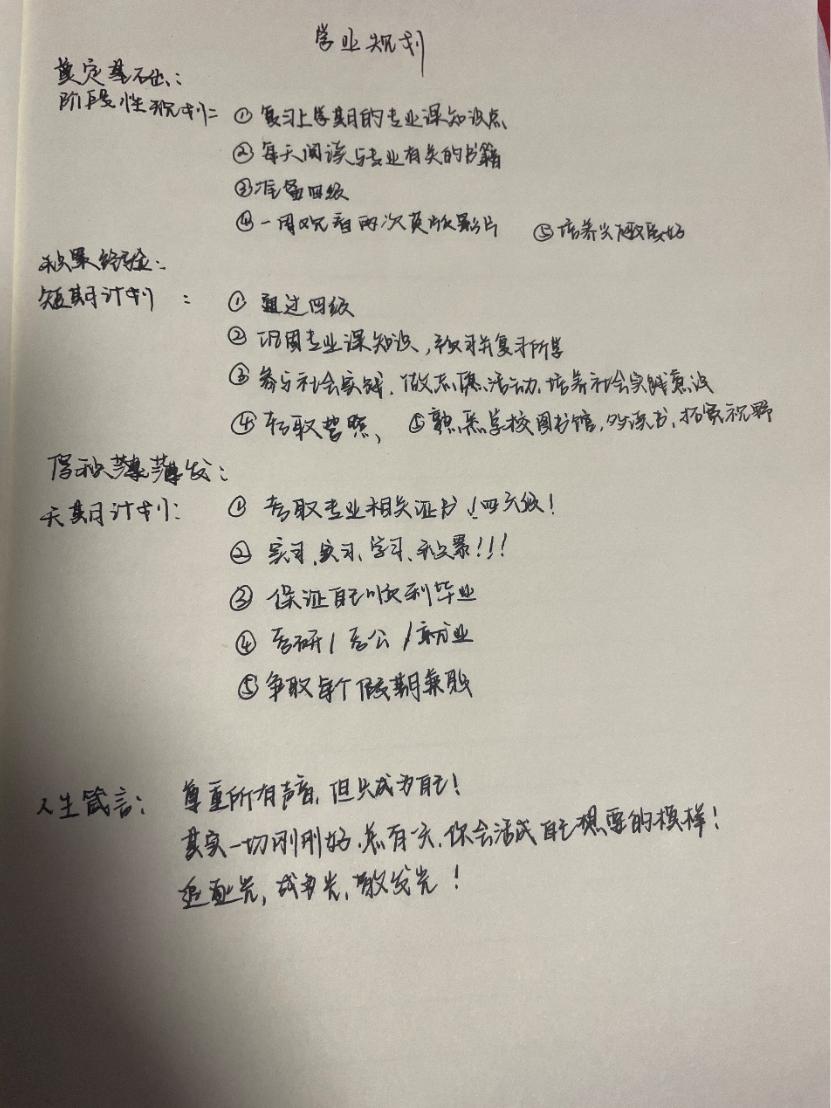 学业规划
奠定基础：
阶段性规划： ① 复习上学期的专业课知识点
② 每天阅读与专业有关的书籍
③ 准备四级
④ 一周观看两次英版影片 ⑤ 培养兴趣爱好
积累经验：
短期计划： ① 通过四级
② 巩固专业课知识，预习并复习所学
③ 参与社会实践、做志愿活动、培养社会实践意识
④ 考取驾照、 ⑤ 熟悉学校图书馆，多读书，拓宽视野
厚积薄发：
长期计划： ① 考取专业相关证书！四六级！
② 实习、实习、学习、积累！！！
③ 保证自己顺利毕业
④ 考研/考公/就业
⑤ 争取每个假期兼职
人生箴言： 尊重所有声音，但只成为自己！
其实一切刚刚好，总有一天，你会活成自己想要的模样！
追逐光，成为光，散发光！